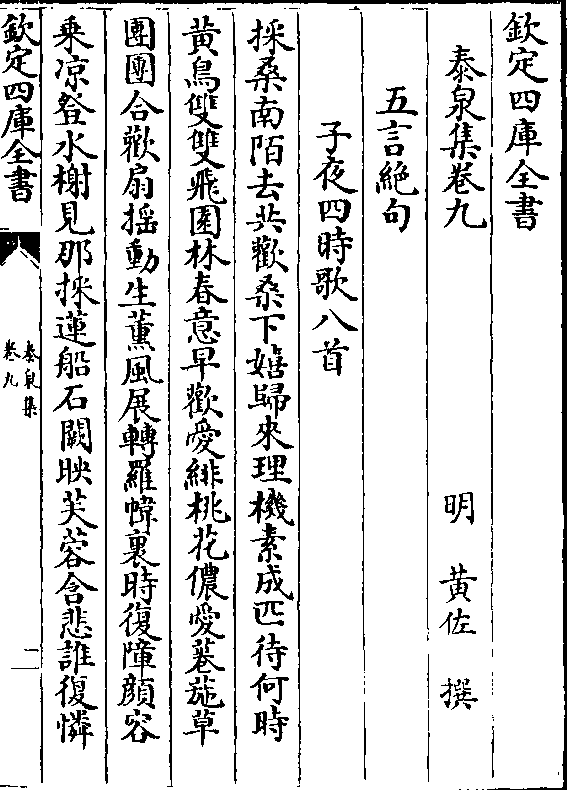 欽定四庫全書
泰泉集卷九
明 黃佐 撰
五言絶句
子夜四時歌八首
採桑南陌去共歡桑下嬉歸來理機素成匹待何時
黃鳥雙雙飛園林春意早歡愛緋桃花儂愛菤葹草
團團合歡扇揺動生薫風展轉羅幃裏時復障顔容
乗凉登水榭見那採蓮船石闕映芙蓉含悲誰復憐
欽定四庫全書
泰泉集
卷九
一